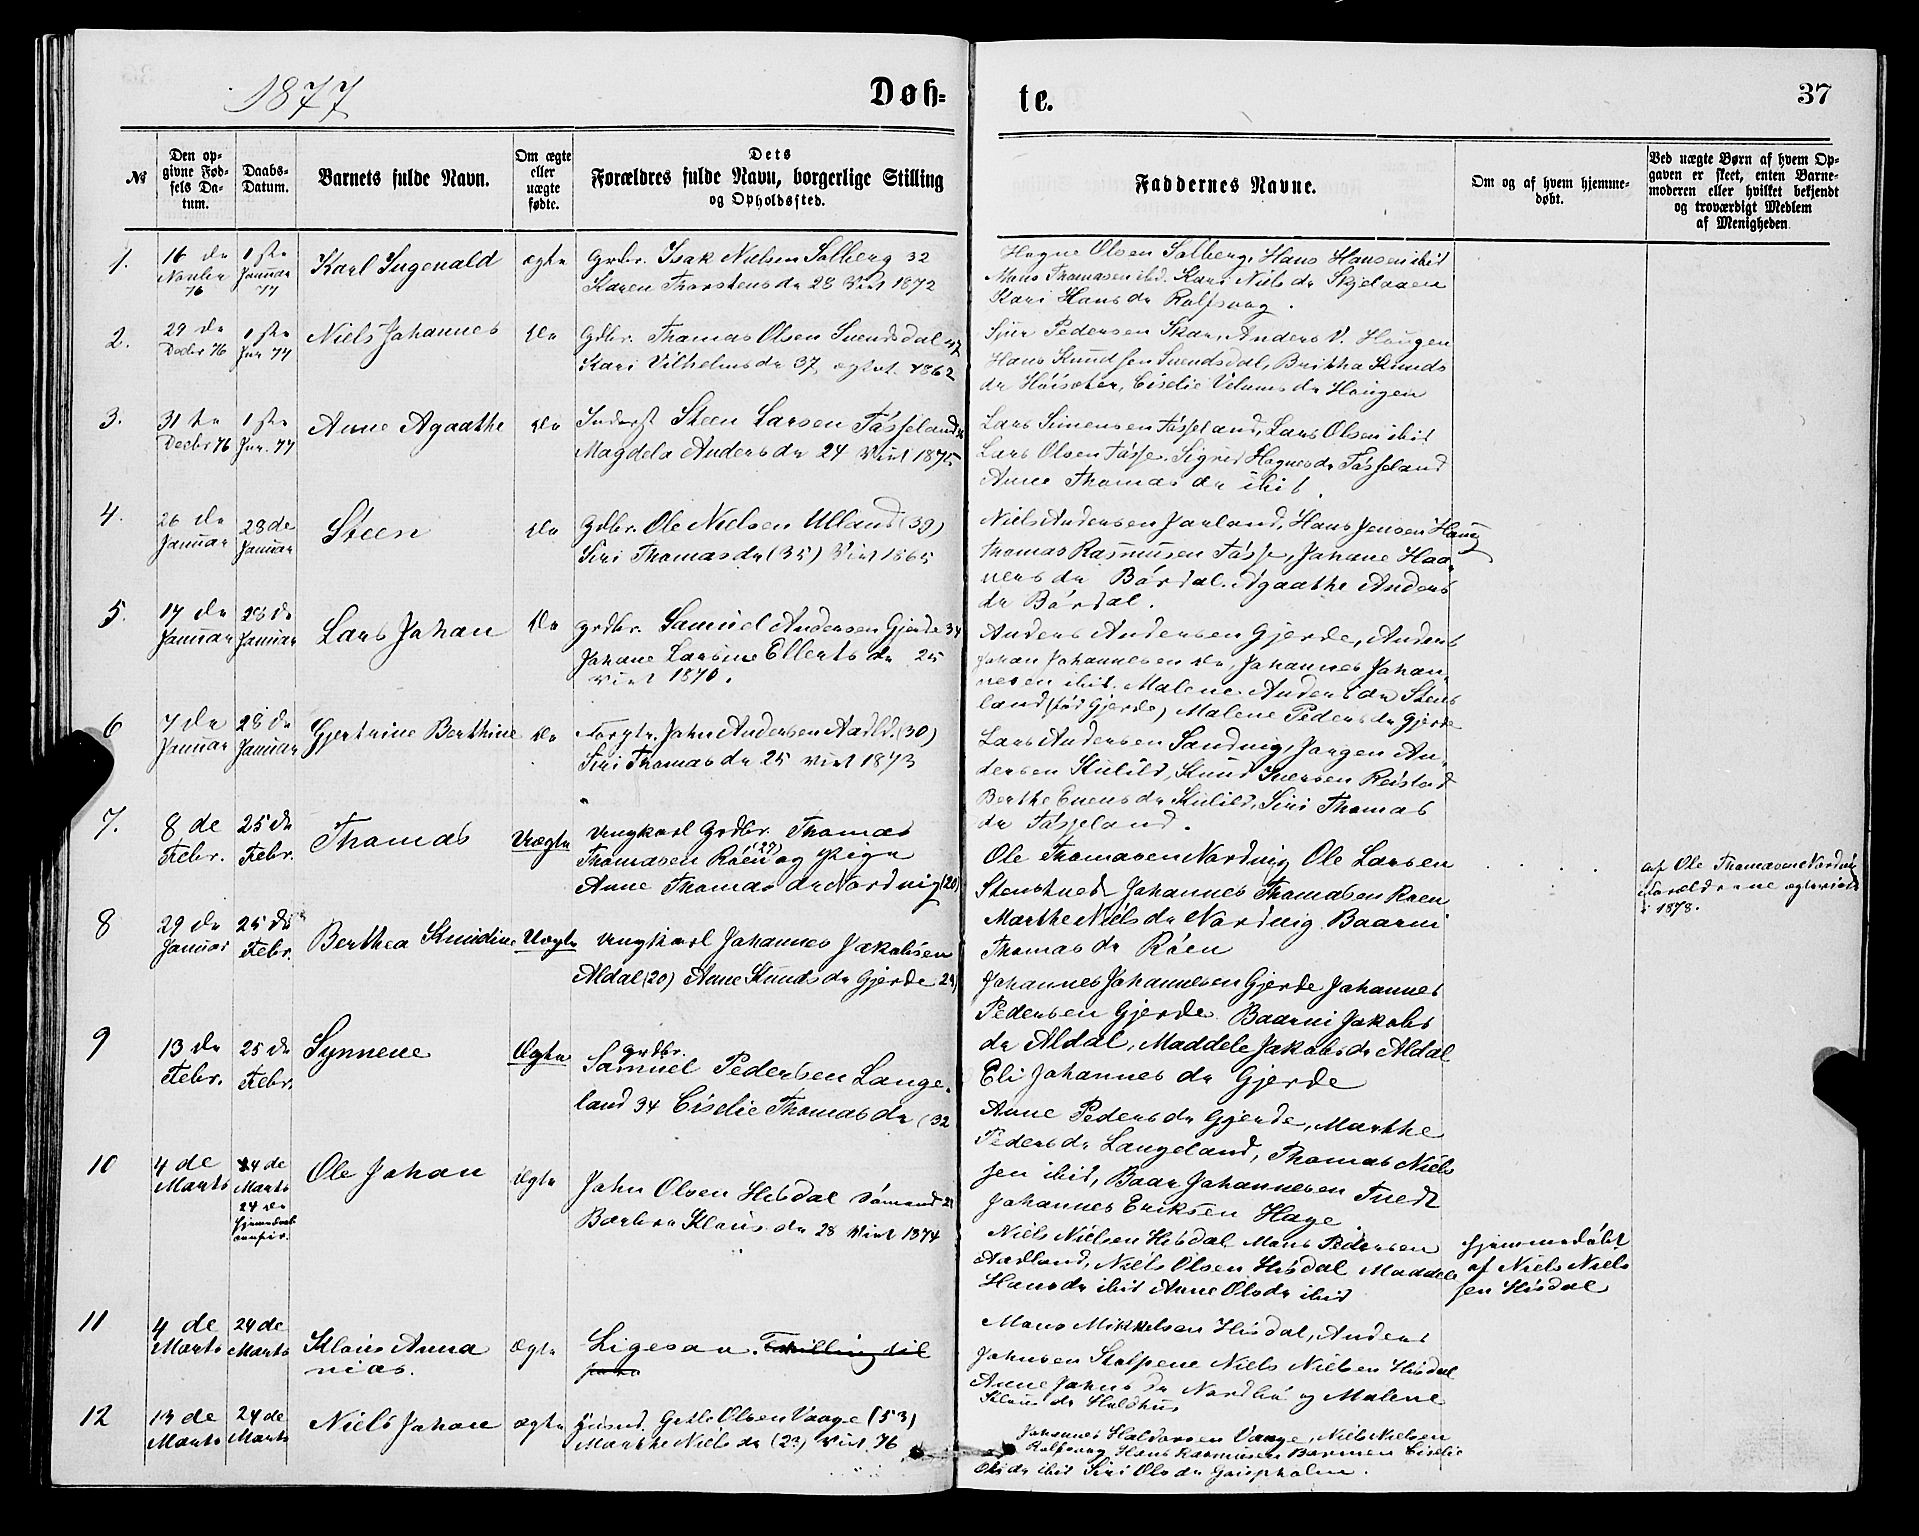 1877
Døb-
te.
37
№
Den opgivne Fødsels Datum.
Daabs-Datum.
Barnets fulde Navn.
Om ægte eller uægte fødte.
Dets
Forældres fulde Navn, borgerlige Stilling
og Opholdssted.
Faddernes Navne.
Om og af hvem hjemmedøbt.
Ved uægte Børn af hvem Opgaven er skeet, enten Barnemoderen eller hvilket bekjendt og troværdigt Medlem af Menigheden.
1.
16 de
76
1ste
Januar
77
Karl Ingevald
ægte
Grdbr. Isak Nielsen Solberg 32
Karen Thorstensdr 28 Viet 1872
Hogne Olsen Solberg, Hans Hansen ibid
Mons Thomasen ibd. Kari Nielsdr Skjelaaen
Kari Hansdr Rolfsvaag.
2.
29 de
Decbr 76
1ste
Jan. 77
Niels Johannes
do
Gdbr. Thomas Olsen Svendsdal 47
Kari Vilhelmsdr 37, ægtev. 1862
Sjur Pedersen Skar, Anders V. Haugen
Hans Knudsen Svendsdal, Brithe Knuds
dr Høisæter, Ciselie Vilumsdr Haugen
3.
31 te
Decbr 76
1ste
Jan. 77
Anne Agaathe
do
Inderst Steen Larsen Tasseland
Magdela Andersdr 24 Viet 1875
Lars Simensen Tasseland, Lars Olsen ibid
Lars Olsen Tasse, Sigrid Hognesdr Tasseland
Anne Thomasdr ibid.
4.
26 de
Januar
28 de
Januar
Steen
do
Gdbr. Ole Nielsen Ulland (39)
Siri Thomasdr (35) Viet 1865
Niels Andersen Jarland, Hans Jensen Haug
Thomas Rasmussen Tasse, Johane Haa-
nesdr Bördal. Agaathe Anders
dr Bördal.
5.
17 de
Januar
28 de
Januar
Lars Johan
do
grdbr. Samuel Andersen Gjerde 34
Johane Larsine Ellertsdr 25
viet 1870.
Anders Andersen Gjerde, Anders
Johan Johannesen do, Johannes Johan-
nesen ibid. Malene Andersdr Stens
land (fød Gjerde) Malene Pedersdr Gjerde
6
7 de
Januar
28 de
Januar
Gjertrine Berthine
do
John Andersen Aadld. (30)
Siri Thomasdr 25 viet 1873
Lars Andersen Sandvig, Jørgen An-
dersen Kulild, Knud Iversen Reistad
Berthe Evensdr Kulild, Siri Thomas
dr Tasseland.
7.
8 de
Febr.
25 de
Febr.
Thomas
Uægte
Ungkarl Grdbr. Thomas
Thomasen Røen (27) og Pige
Anne Thomasdr Nordvig (20)
Ole Thomasen Nordvig Ole Larsen
Stenstvedt Johannes Thomasen Røen
Marthe Nielsdr Nordvig Baarni
Thomasdr Røen
af Ole Thomasen Nordvig
Forældrene ægteviede
i 1878.
8
29 de
Januar
25 de
Febr.
Berthea Knudine
Uægte
Ungkarl Johannes Jakobsen
Aldal (20) Anne Knudsdr Gjerde 24)
Johannes Johannesen Gjerde Johannes
Pedersen Gjerde Baarni Jakobs
dr Aldal, Maddele Jakobsdr Aldal
Eli Johannesdr Gjerde
9
13 de
Febr.
25 de
Febr.
Synneve
Ægte
Grdbr.
Samuel Pedersen Lange-
land 34 Ciselie Thomasdr (32
Anne Pedersdr Gjerde, Marthe
Pedersdr Langeland, Thomas Niels
sen ibid, Baar Johannesen Tvedt
Johannes Eriksen Hage.
10
4 de
Marts
24 de
Marts
24 de
Ole Johan
Ægte
John Olsen Hisdal Sømand 21
Barbra Klausdr 28 Viet 1874
Niels Nielsen Hisdal Mons Pedersen
Aadland, Niels Olsen Hisdal Maddele
Hansdr ibid Anne Olsdr ibid
hjemmedøbt
af Niels Niels
sen Hisdal
11
4 de
Marts
24 de
Marts
Klaus Anna
nias.
Ægte
Ligesaa. Tvilling til
Mons Mikkelsen Hisdal, Anders
Johnsen Stolpene Niels Nielsen Hisdal
Anne Johnsdr og Malene
Klausdr
12
13 de
Marts
24 de
Marts
Niels Johan
ægte
Husmd. Getle Olsen Vaage (53)
Marthe Nielsdr (23) viet 76
Johannes Haldorsen Vaage, Niels Nielsen
Rolfsvaag Hans Rasmussen Ciselie
Olsdr ibid Siri Olsdr